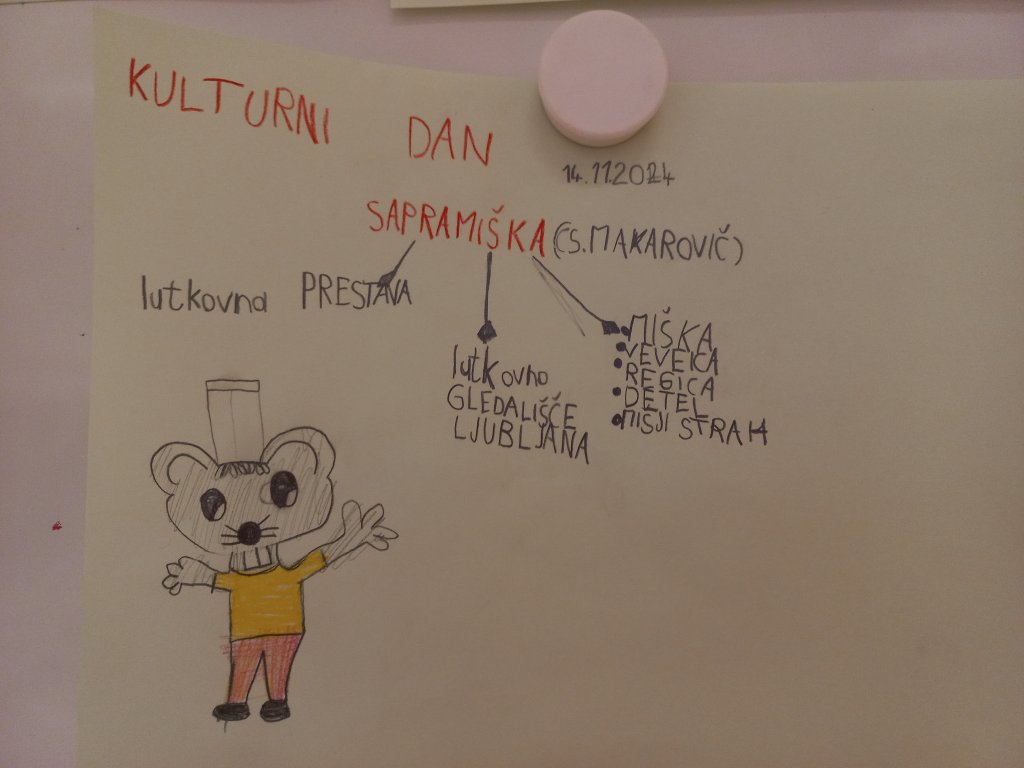 KULTURNI DAN
14.11.2024
SAPRAMIŠKA (S.MAKAROVIČ)
lutkovna PRESTAVA
lutkovno
GLEDALIŠČE
LJUBLJANA
• MIŠKA
• VEVEICA
• REGICA
• DETEL
• MIŠJI STRAH